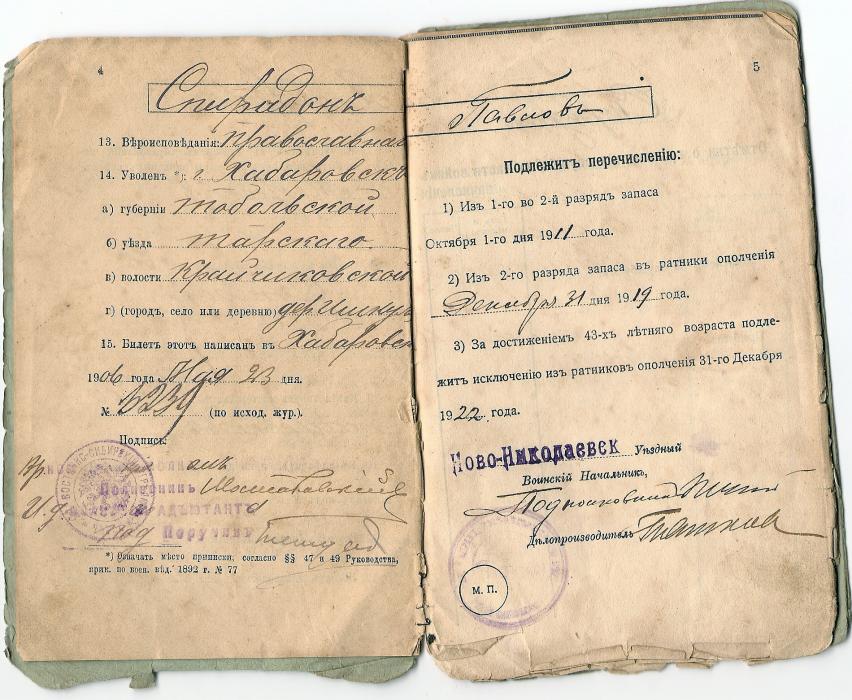 4
Спирадонъ
13. Вѣроисповѣданія: православная
14. Уволен *): г. Хабаровскъ
а) губерніи Тобольской
б) уѣзда Тарскаго
в) волости Крайчиковской
г) (городъ, село или деревню) дер
15. Билет этот написан въ Хабаровск
1906 года Мая 23 дня.
№ 3239 (по исход. жур.)
Подпись:
Полковникъ
АДЪЮТАНТЪ
Поручикъ
*) Означать мѣсто приписки, согласно §§ 47 и 49 Руководства,
прик. по воен. вѣд. 1892 г. № 77
5
Павловъ
Подлежит перечисленію:
1) Изъ 1-го во 2-й разряд запаса
Октября 1-го дня 1911 года.
2) Изъ 2-го разряда запаса въ ратники ополченія
Декабря 31 дня 1919 года.
3) За достиженіем 43-хъ лѣтняго возраста подле-
житъ исключенію изъ ратниковъ ополченія 31-го Декабря
1922 года.
Ново-Николаевск Уѣздный
Воинскій Начальник,
Подполковникъ
Дѣлопроизводитель
М. П.